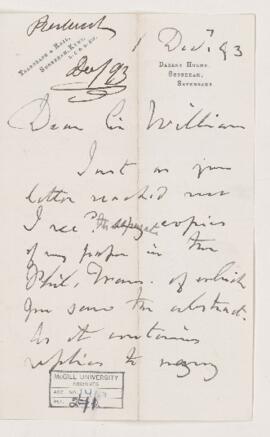 Prestwich
Telegraph & Rail,
Shoreham, Kent.
L.C. & D. Ry.
Dec/93
1 Dec. 93
Darent Hulme,
Shoreham,
Sevenoaks
Dear Sir William
Just as your
letter reached me
I rec'd the separate copies
of my paper in the
Phil. Trans. of which
you saw the abstract.
As it contains
replies to many
McGILL UNIVERSITY
ARCHIVES
ACC. NO.
REF.